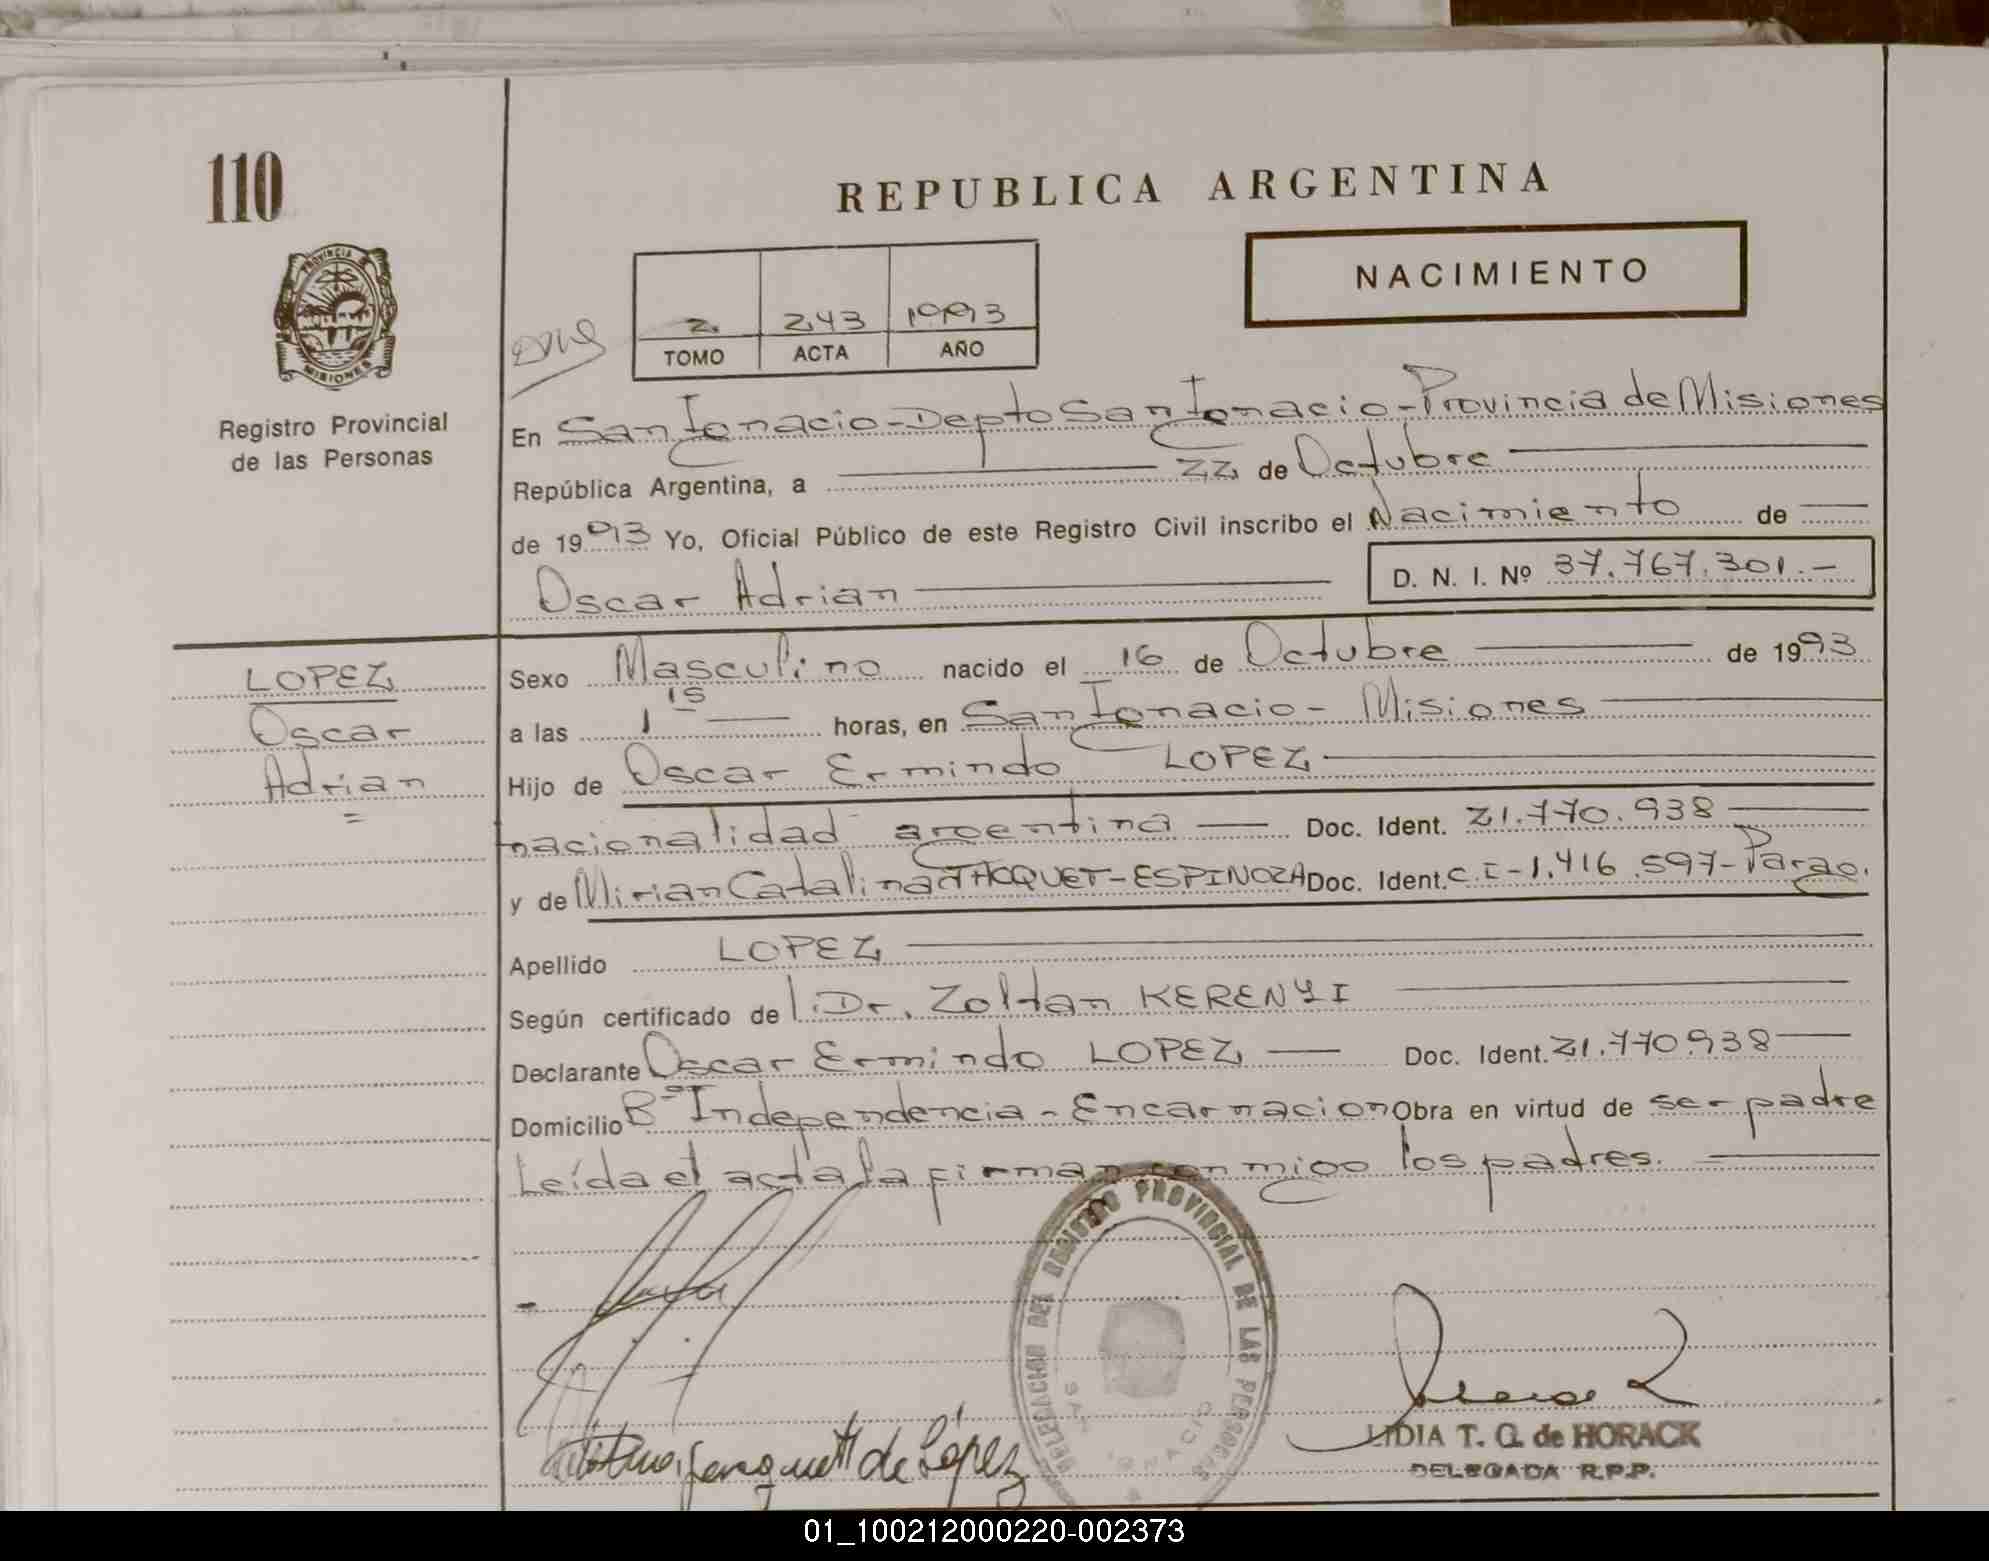 110
REPUBLICA ARGENTINA
NACIMIENTO
PROVINCIA DE
MISIONES
Registro Provincial
de las Personas
2 243 1993
TOMO ACTA AÑO
En San Ignacio-Depto San Ignacio-Provincia de Misiones
República Argentina, a 22 de Octubre
de 1993 Yo, Oficial Público de este Registro Civil inscribo el Nacimiento de
Oscar Adrian D. N. I. Nº 37.767.301.-
LOPEZ
Oscar
Adrian
=
Sexo Masculino nacido el 16 de Octubre de 1993
a las 1 15 horas, en San Ignacio - Misiones
Hijo de Oscar Ermindo LOPEZ
nacionalidad argentina Doc. Ident. 21.770.938
y de Mirian Catalina ESPINOZA Doc. Ident. C.I-1.416.597-Parag.
Apellido LOPEZ
Según certificado de Dr. Zoltan KERENYI
Declarante Oscar Ermindo LOPEZ Doc. Ident. 21.770.938
Domicilio Bº Independencia - Encarnacion Obra en virtud de ser padre
Leída el acta la firman conmigo los padres.
DELEGACION DEL REGISTRO PROVINCIAL DE LAS PERSONAS
SAN IGNACIO
de López
LIDIA T. G. de HORACK
DELEGADA R.P.P.
01_100212000220-002373